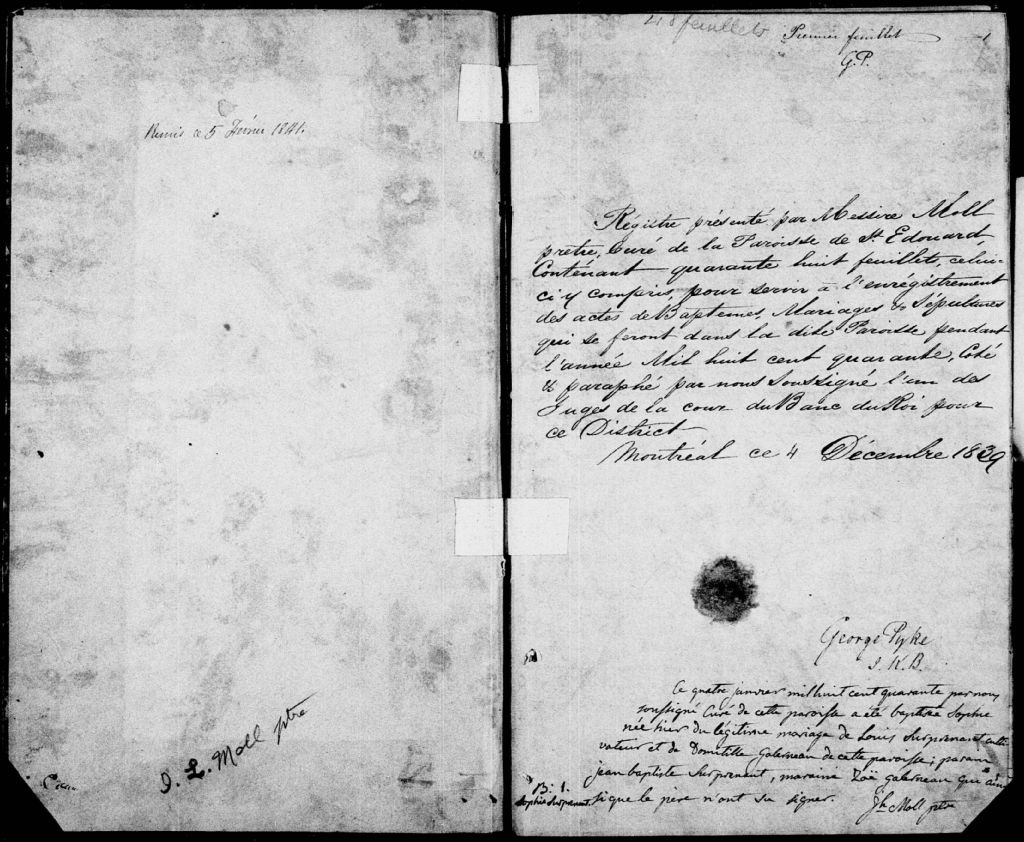 Remis ce 5 Février 1841.
J. L. Moll ptre
48 feuillets
Premier feuillet 1
G.P.
Régistre présenté par Messire Moll
prêtre, Curé de la Paroisse de St. Edouard,
Conténant quarante huit feuillets, celui-
ci y compris, pour servir à l'enrégistrement
des actes de Baptemes, Mariages & Sépultures
qui se feront dans la dite Paroisse pendant
l'année Mil huit cent quarante, Coté
& paraphé par nous Soussigné l'un des
Juges de la cour du Banc du Roi pour
ce District
Montréal ce 4 Décembre 1839
George Pyke
J.K.B.
Ce quatre janvier mil huit cent quarante par nous
soussigné Curé de cette paroisse a été baptisée Sophie
née hier du légitime mariage de Louis Surprenant culti-
vateur et de Domitille Galerneau de cette paroisse; parain
jean baptiste Surprenant, maraine Zoé galerneau qui ain
si que le père n'ont su signer. Jh Moll ptre
B: 1.
Sophie Surprenant